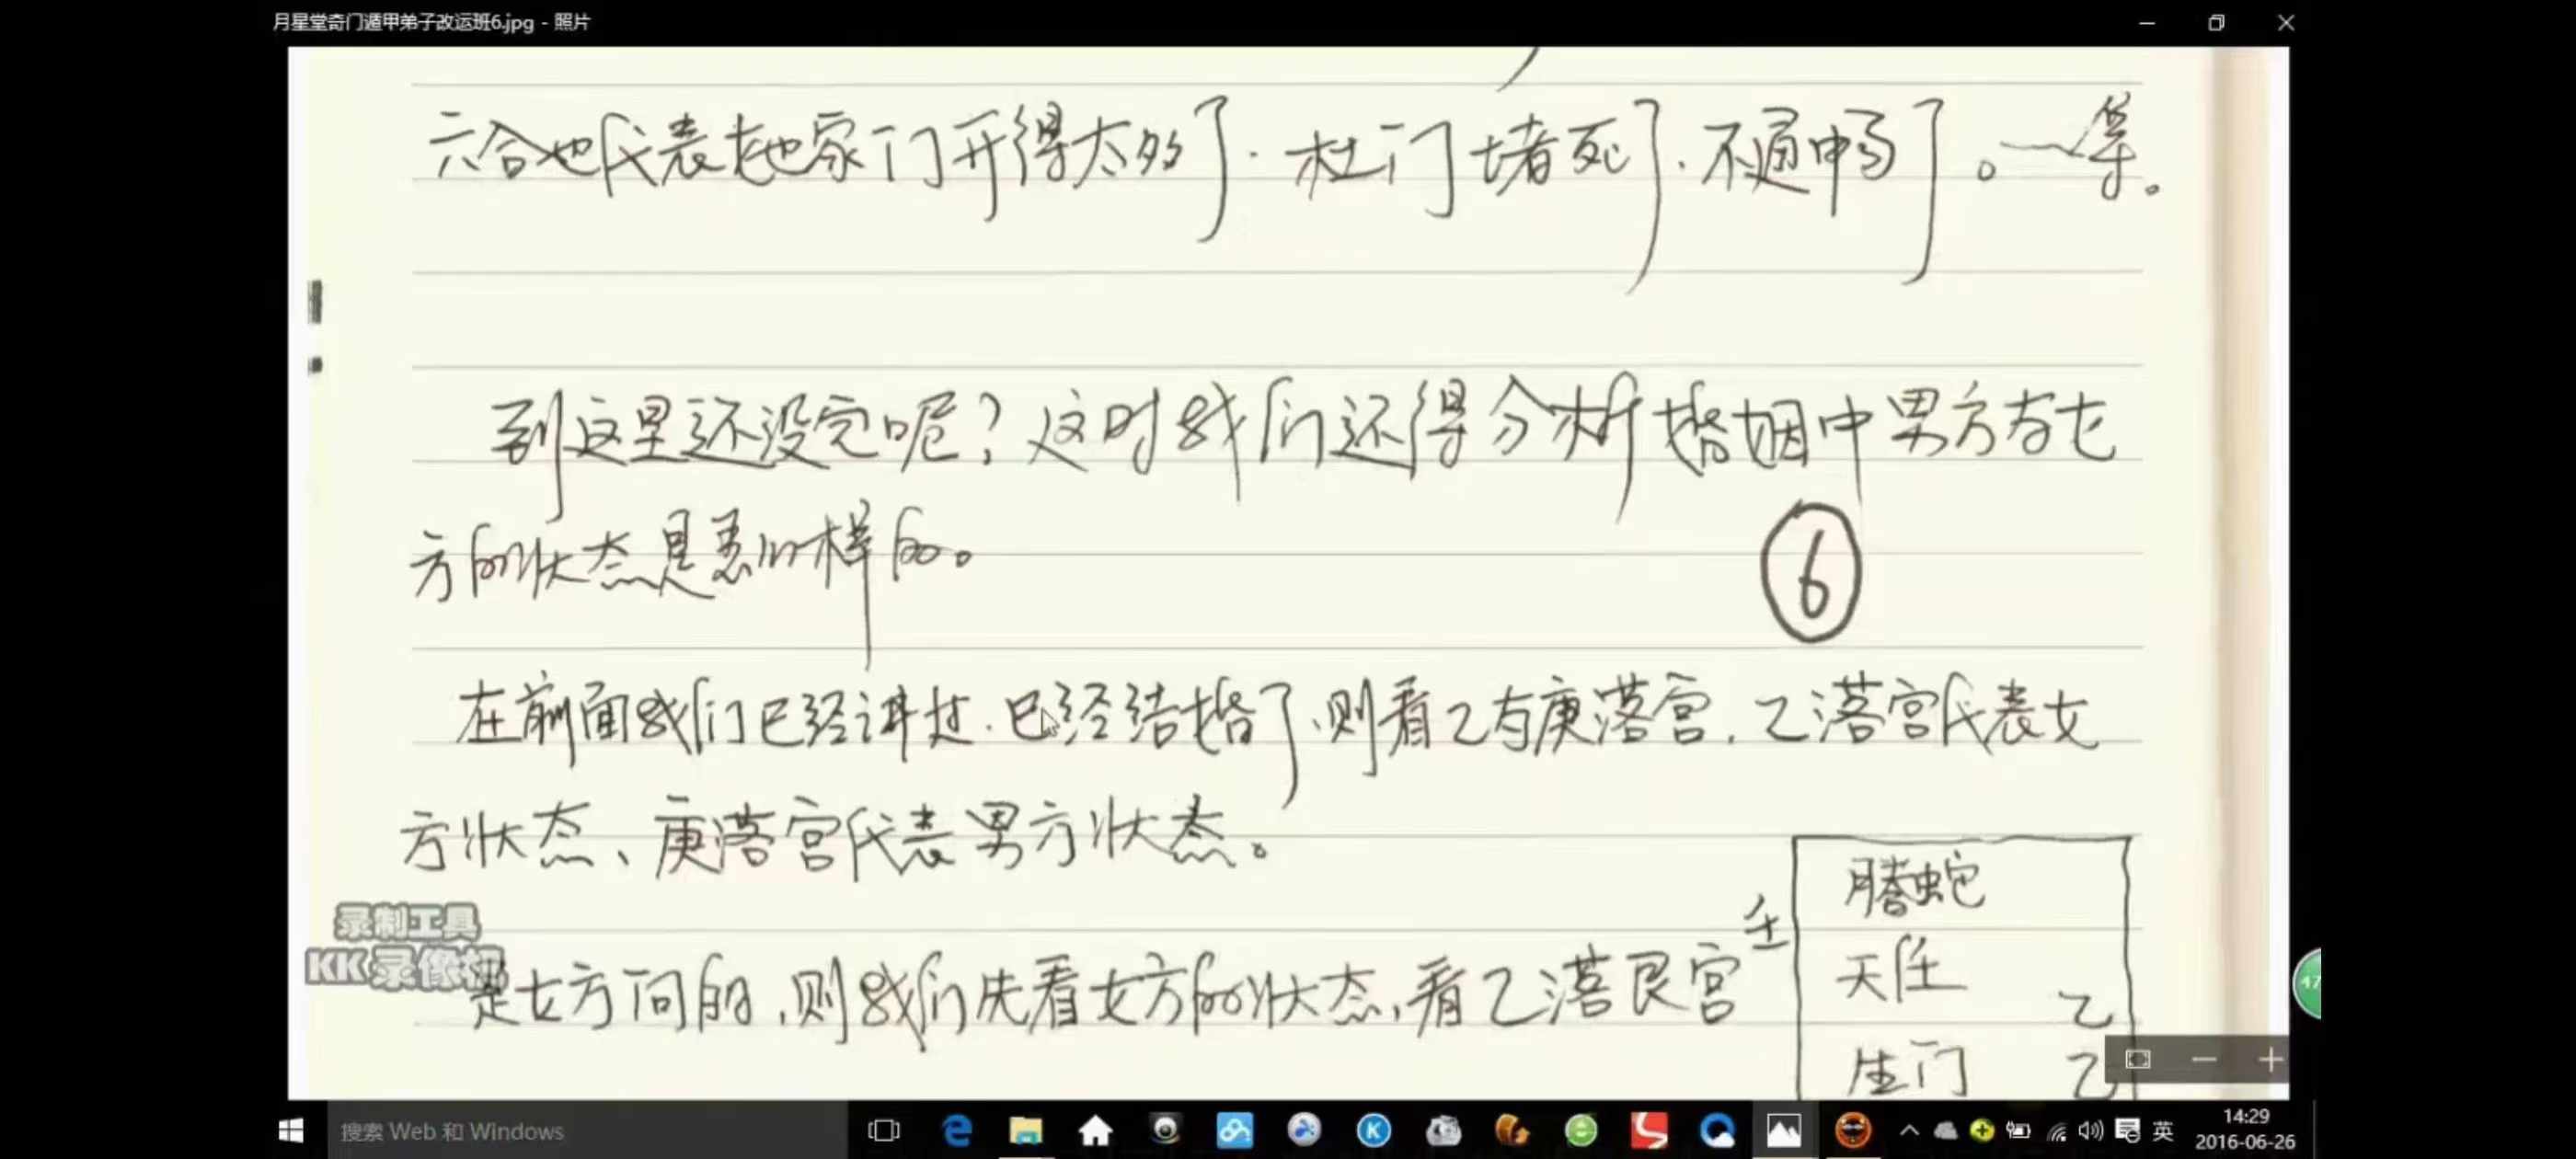 月星堂奇门遁甲弟子改运班6.jpg - 照片
六合也代表她家门开得太多了．杜门堵死了．不通畅了。——等。
到这里还没完呢？这时我们还得分析婚姻中男方与女
方的状态是怎么样的。
⑥
在前面我们已经讲过．已经结婚了，则看乙与庚落宫．乙落宫代表女
方状态、庚落宫代表男方状态。
是女方问的，则我们先看女方的状态，看乙落艮宫
壬
腾蛇
天任
乙
生门 乙
录制工具
KK录像机
47
搜索 Web 和 Windows
英
14:29
2016-06-26